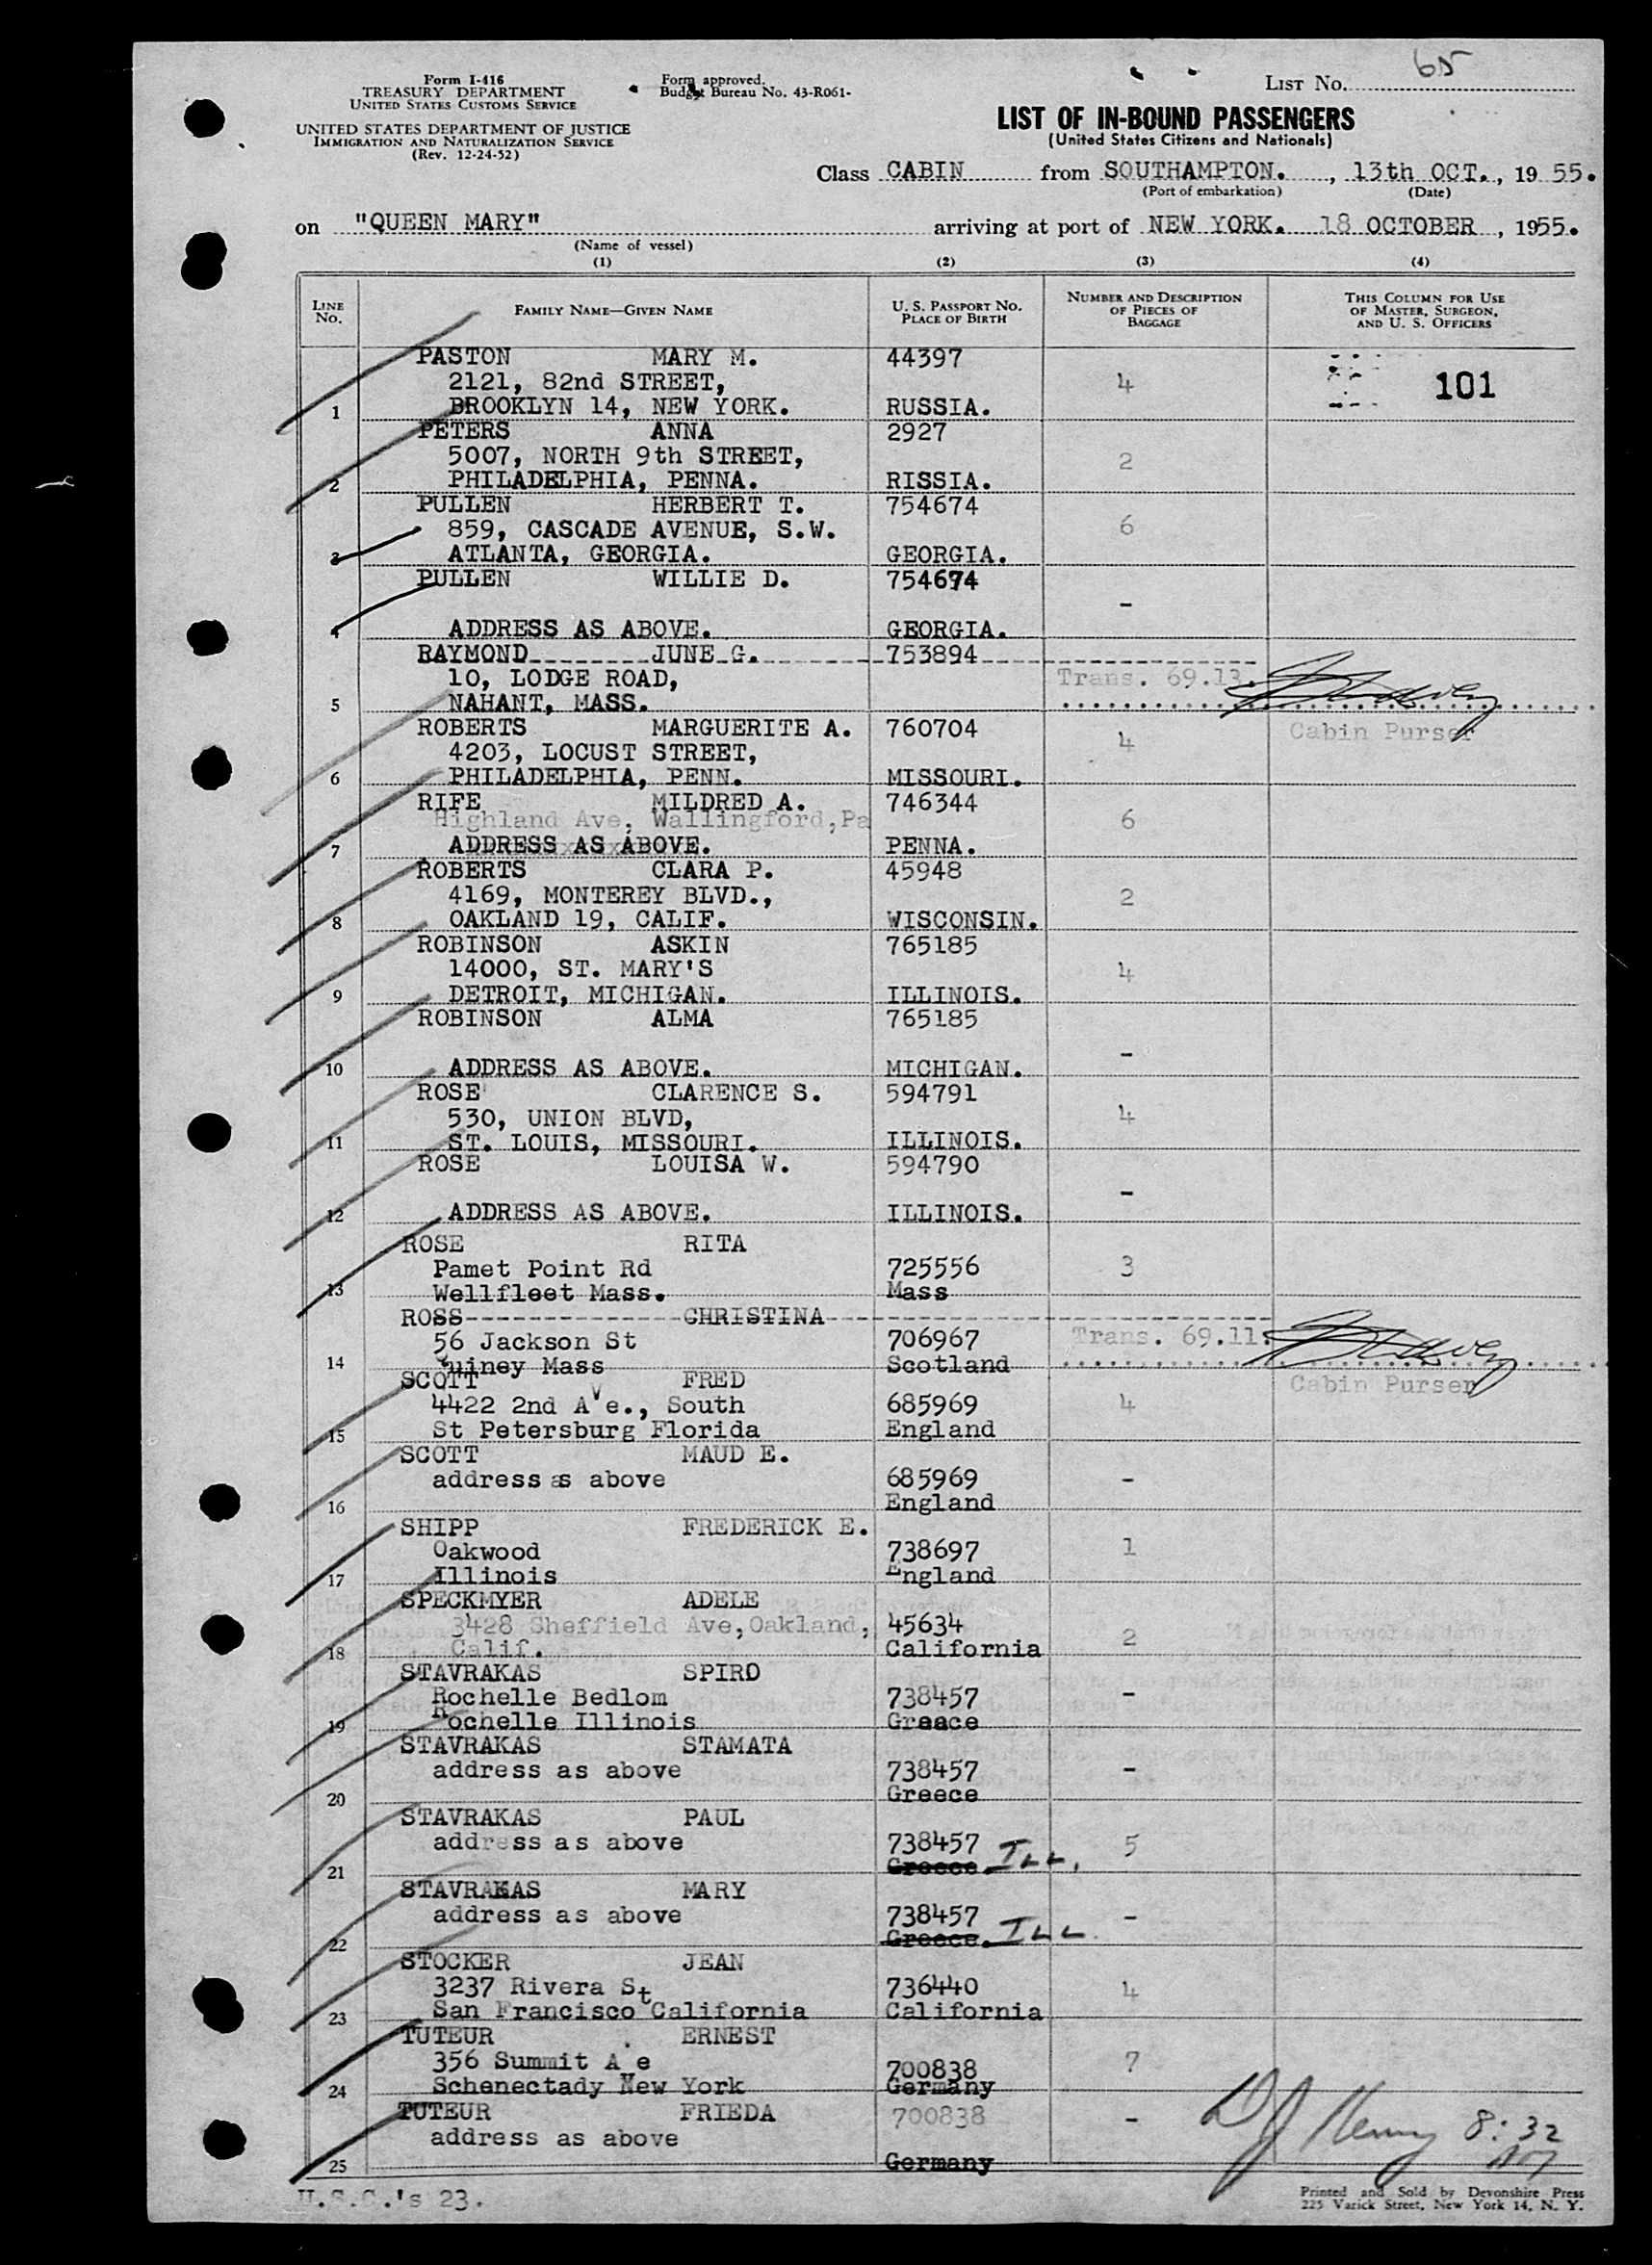 65
Form I-416
TREASURY DEPARTMENT
UNITED STATES CUSTOMS SERVICE
UNITED STATES DEPARTMENT OF JUSTICE
IMMIGRATION AND NATURALIZATION SERVICE
(Rev. 12-24-52)
Form approved.
Budget Bureau No. 43-R061-
LIST No.
LIST OF IN-BOUND PASSENGERS
(United States Citizens and Nationals)
Class CABIN from SOUTHAMPTON. , 13th OCT. , 19 55.
(Port of embarkation) (Date)
on "QUEEN MARY" arriving at port of NEW YORK. 18 OCTOBER , 1955.
(Name of vessel)
(1) (2) (3) (4)
LINE No. FAMILY NAME—GIVEN NAME U. S. PASSPORT No. PLACE OF BIRTH NUMBER AND DESCRIPTION OF PIECES OF BAGGAGE THIS COLUMN FOR USE OF MASTER, SURGEON, AND U. S. OFFICERS
PASTON MARY M. 44397
2121, 82nd STREET, 4 101
1 BROOKLYN 14, NEW YORK. RUSSIA.
PETERS ANNA 2927
5007, NORTH 9th STREET, 2
2 PHILADELPHIA, PENNA. RISSIA.
PULLEN HERBERT T. 754674
859, CASCADE AVENUE, S.W. 6
3 ATLANTA, GEORGIA. GEORGIA.
PULLEN WILLIE D. 754674
-
4 ADDRESS AS ABOVE. GEORGIA.
RAYMOND JUNE G. 753894
10, LODGE ROAD, Trans. 69.13.
5 NAHANT, MASS.
ROBERTS MARGUERITE A. 760704 Cabin Purser
4203, LOCUST STREET, 4
6 PHILADELPHIA, PENN. MISSOURI.
RIFE MILDRED A. 746344
Highland Ave, Wallingford,Pa 6
7 ADDRESS AS ABOVE. PENNA.
ROBERTS CLARA P. 45948
4169, MONTEREY BLVD., 2
8 OAKLAND 19, CALIF. WISCONSIN.
ROBINSON ASKIN 765185
14000, ST. MARY'S 4
9 DETROIT, MICHIGAN. ILLINOIS.
ROBINSON ALMA 765185
-
10 ADDRESS AS ABOVE. MICHIGAN.
ROSE CLARENCE S. 594791
530, UNION BLVD, 4
11 ST. LOUIS, MISSOURI. ILLINOIS.
ROSE LOUISA W. 594790
-
12 ADDRESS AS ABOVE. ILLINOIS.
ROSE RITA
Pamet Point Rd 725556 3
13 Wellfleet Mass. Mass
ROSS CHRISTINA
56 Jackson St 706967 Trans. 69.11.
14 Quiney Mass Scotland
SCOTT FRED Cabin Purser
4422 2nd Ave., South 685969 4
15 St Petersburg Florida England
SCOTT MAUD E.
address as above 685969 -
16 England
SHIPP FREDERICK E.
Oakwood 738697 1
17 Illinois England
SPECKMYER ADELE
3428 Sheffield Ave,Oakland, 45634
18 Calif. California 2
STAVRAKAS SPIRO
Rochelle Bedlom 738457 -
19 Rochelle Illinois Greace
STAVRAKAS STAMATA
address as above 738457 -
20 Greece
STAVRAKAS PAUL
address as above 738457 5
21 Greece ILL.
STAVRAKAS MARY
address as above 738457 -
22 Greece. ILL.
STOCKER JEAN
3237 Rivera St 736440 4
23 San Francisco California California
TUTEUR ERNEST
356 Summit A e 700838 7
24 Schenectady New York Germany
TUTEUR FRIEDA 700838 -
address as above
25 Germany
DJ Henry 8:32
U.S.C.'s 23.
Printed and Sold by Devonshire Press
225 Varick Street, New York 14, N. Y.